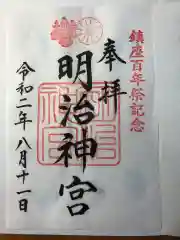 鎮座百年祭記念
奉拝
明治神宮
令和二年八月十一日